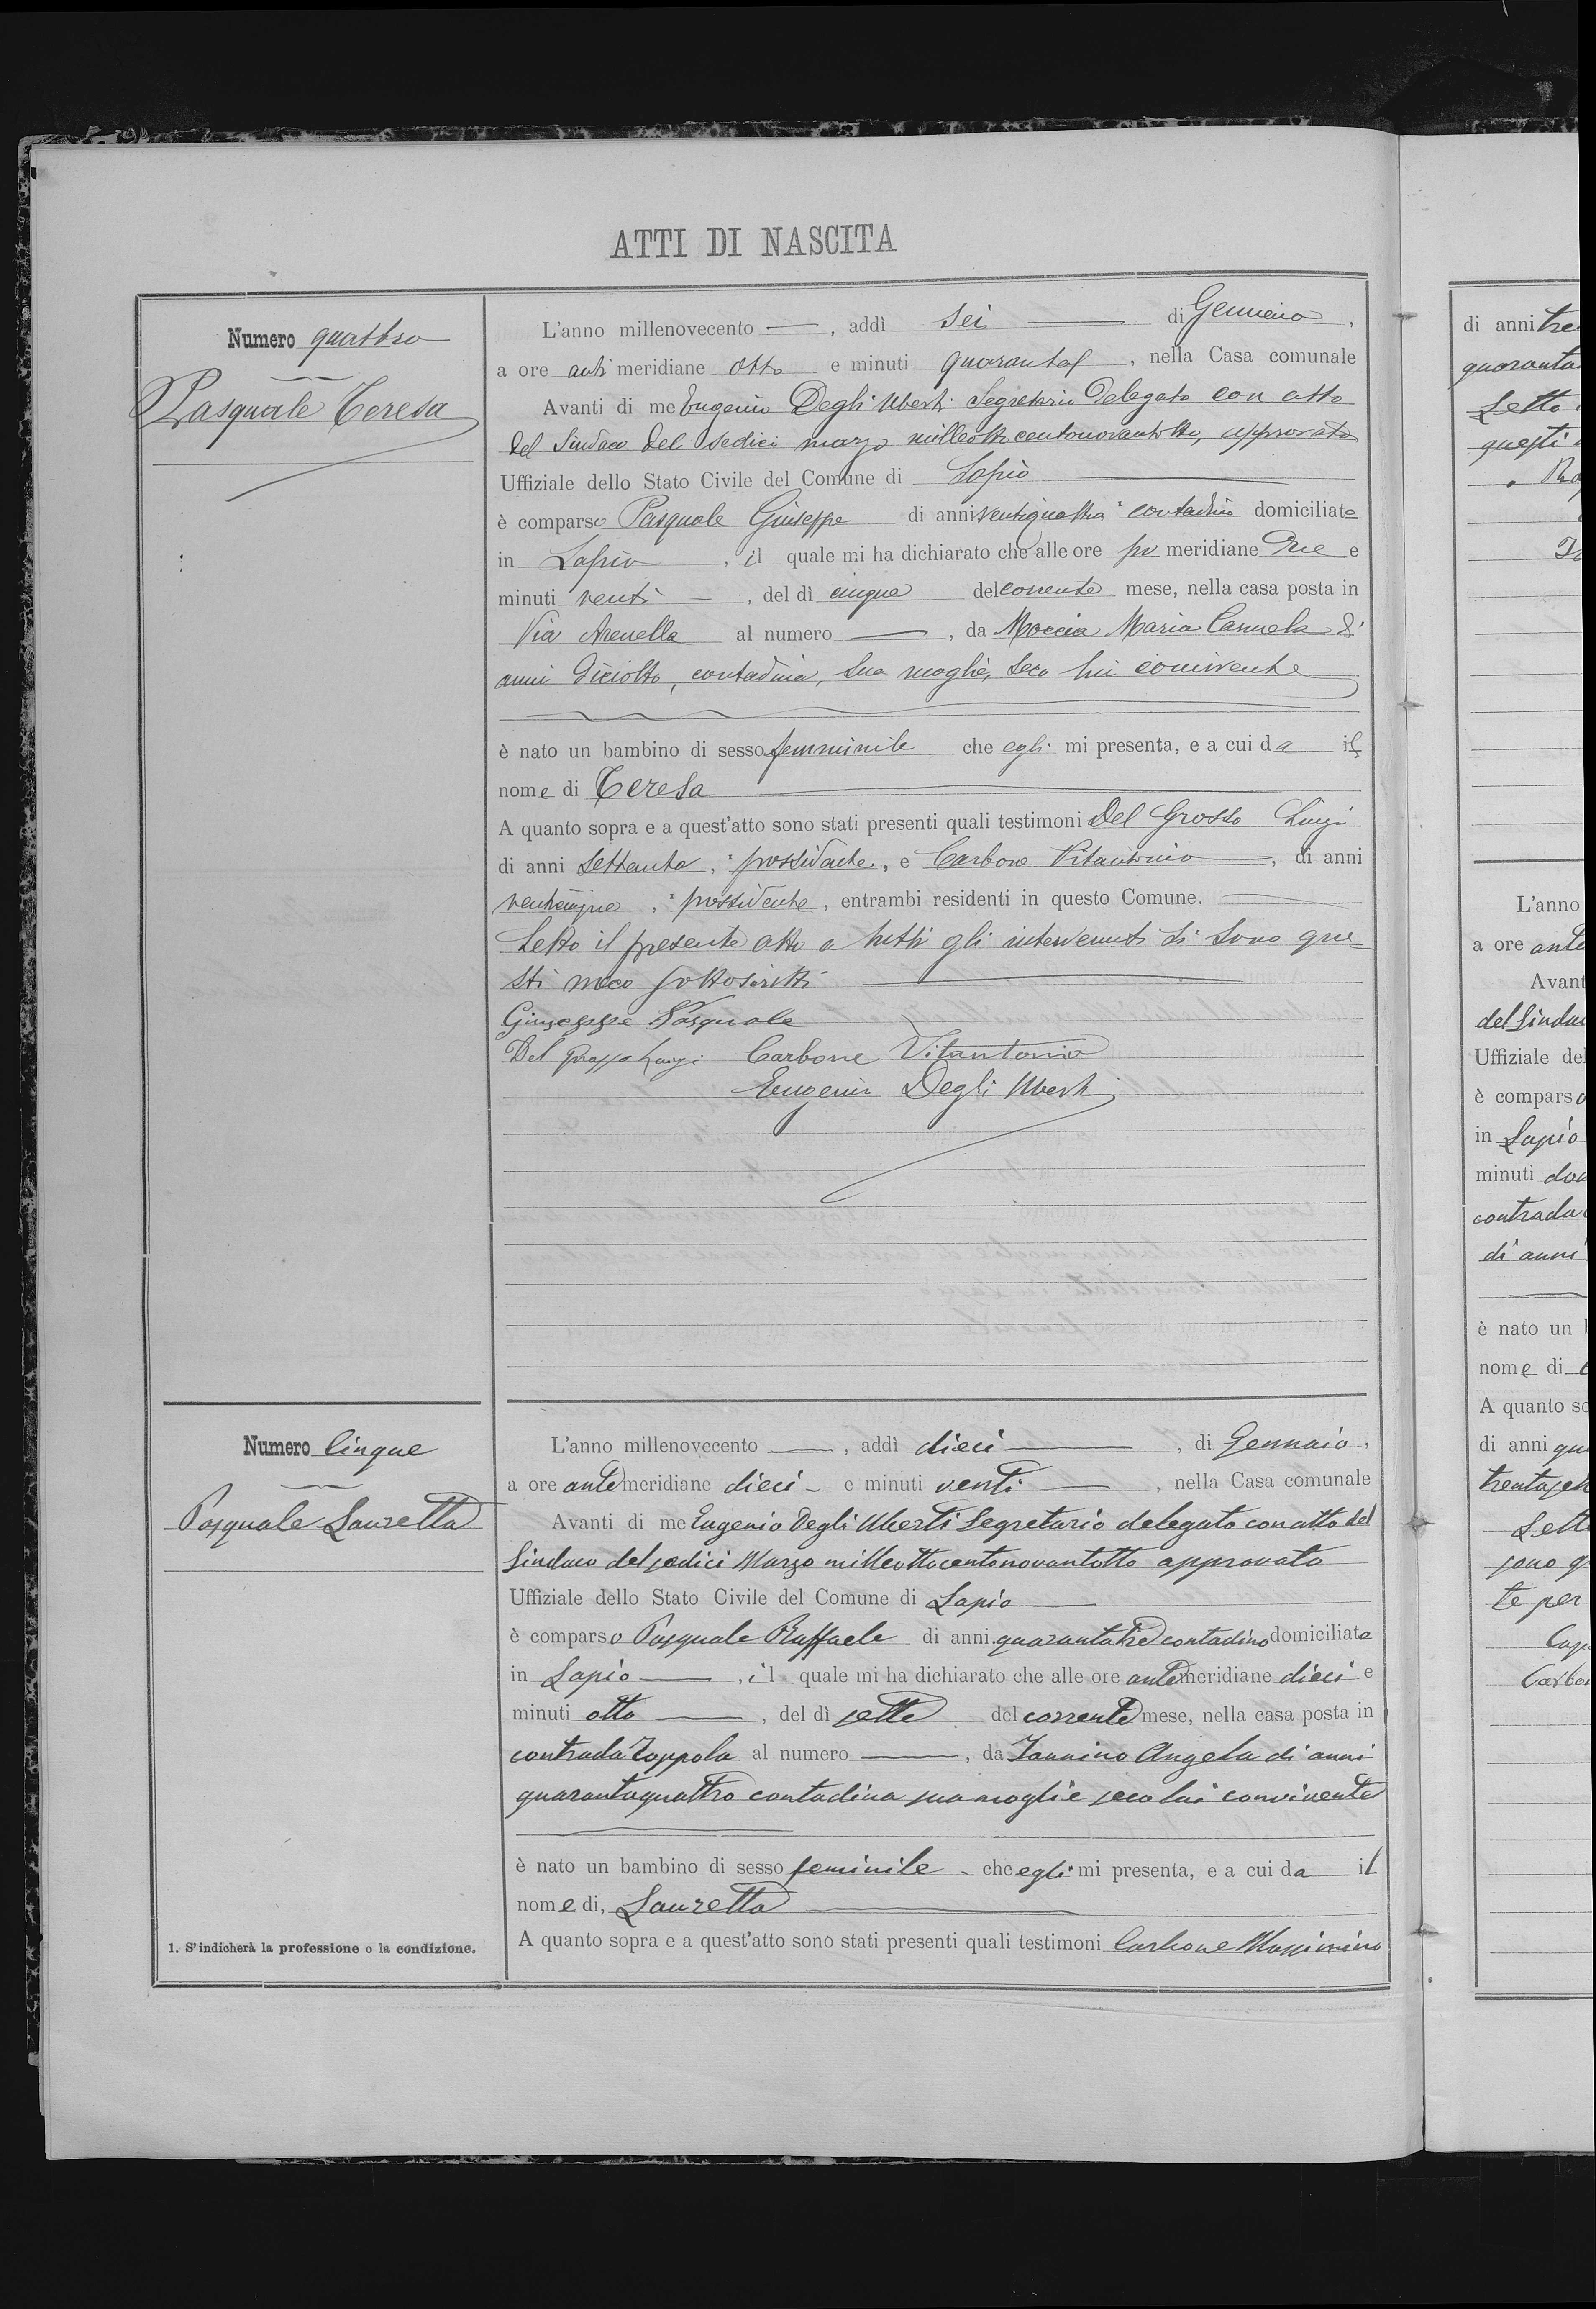 ATTI DI NASCITA
Numero quattro
Pasquale Teresa
L'anno millenovecento —, addì sei — di Gennaio,
a ore anti meridiane otto e minuti quaranta, nella Casa comunale
Avanti di me Eugenio Degli Uberti Segretario Delegato con atto
del Sindaco del sedici marzo milleottocentonovantotto, approvato
Uffiziale dello Stato Civile del Comune di Lapio
è comparso Pasquale Giuseppe di anni ventiquattro contadino domiciliato
in Lapio, il quale mi ha dichiarato che alle ore po meridiane tre e
minuti venti —, del dì cinque del corrente mese, nella casa posta in
Via Arenella al numero —, da Moccia Maria Carmela di
anni diciotto, contadina, sua moglie, seco lui convivente
è nato un bambino di sesso femminile che egli mi presenta, e a cui da il
nome di Teresa
A quanto sopra e a quest'atto sono stati presenti quali testimoni Del Grosso Luigi
di anni settanta, possidente, e Carbone Vitantonio —, di anni
venticinque, possidente, entrambi residenti in questo Comune.
Letto il presente atto a tutti gli intervenuti si sono que-
sti meco sottoscritti
Giuseppe Pasquale
Del Grosso Luigi Carbone Vitantonio
Eugenio Degli Uberti
Numero Cinque
Pasquale Lauretta
L'anno millenovecento —, addì dieci —, di Gennaio,
a ore ante meridiane dieci e minuti venti —, nella Casa comunale
Avanti di me Eugenio Degli Uberti Segretario delegato con atto del
Sindaco del sedici Marzo milleottocentonovantotto approvato
Uffiziale dello Stato Civile del Comune di Lapio
è comparso Pasquale Raffaele di anni quarantatre contadino domiciliato
in Lapio —, il quale mi ha dichiarato che alle ore ante meridiane dieci e
minuti otto —, del dì sette del corrente mese, nella casa posta in
contrada Toppola al numero —, da Iannino Angela di anni
quarantaquattro contadina sua moglie seco lui convivente
è nato un bambino di sesso feminile - che egli mi presenta, e a cui da il
nome di, Lauretta
A quanto sopra e a quest'atto sono stati presenti quali testimoni Carbone Massimino
1. S'indicherà la professione o la condizione.
di anni tre
quaranta
Letto
questi
L'anno
a ore ante
Avant
del Sindac
Uffiziale del
è comparso
in Lapio
minuti dod
contrada
di anni
è nato un
nome di
A quanto so
di anni qua
trentasen
Lett
sono q
te per
Carbon